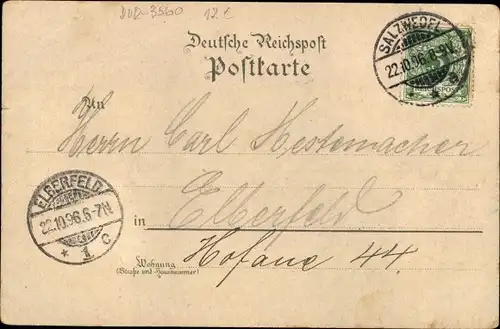 DUD-3560 12 €
Deutsche Reichspost
Postkarte
SALZWEDEL
22.10.96.6-7N.
a
An
Herrn Carl Hestemacher
ELBERFELD
22.10.96.6-7N
* 1 c
in Elberfeld
Wohnung
(Straße und Hausnummer)
Hofaue 44.